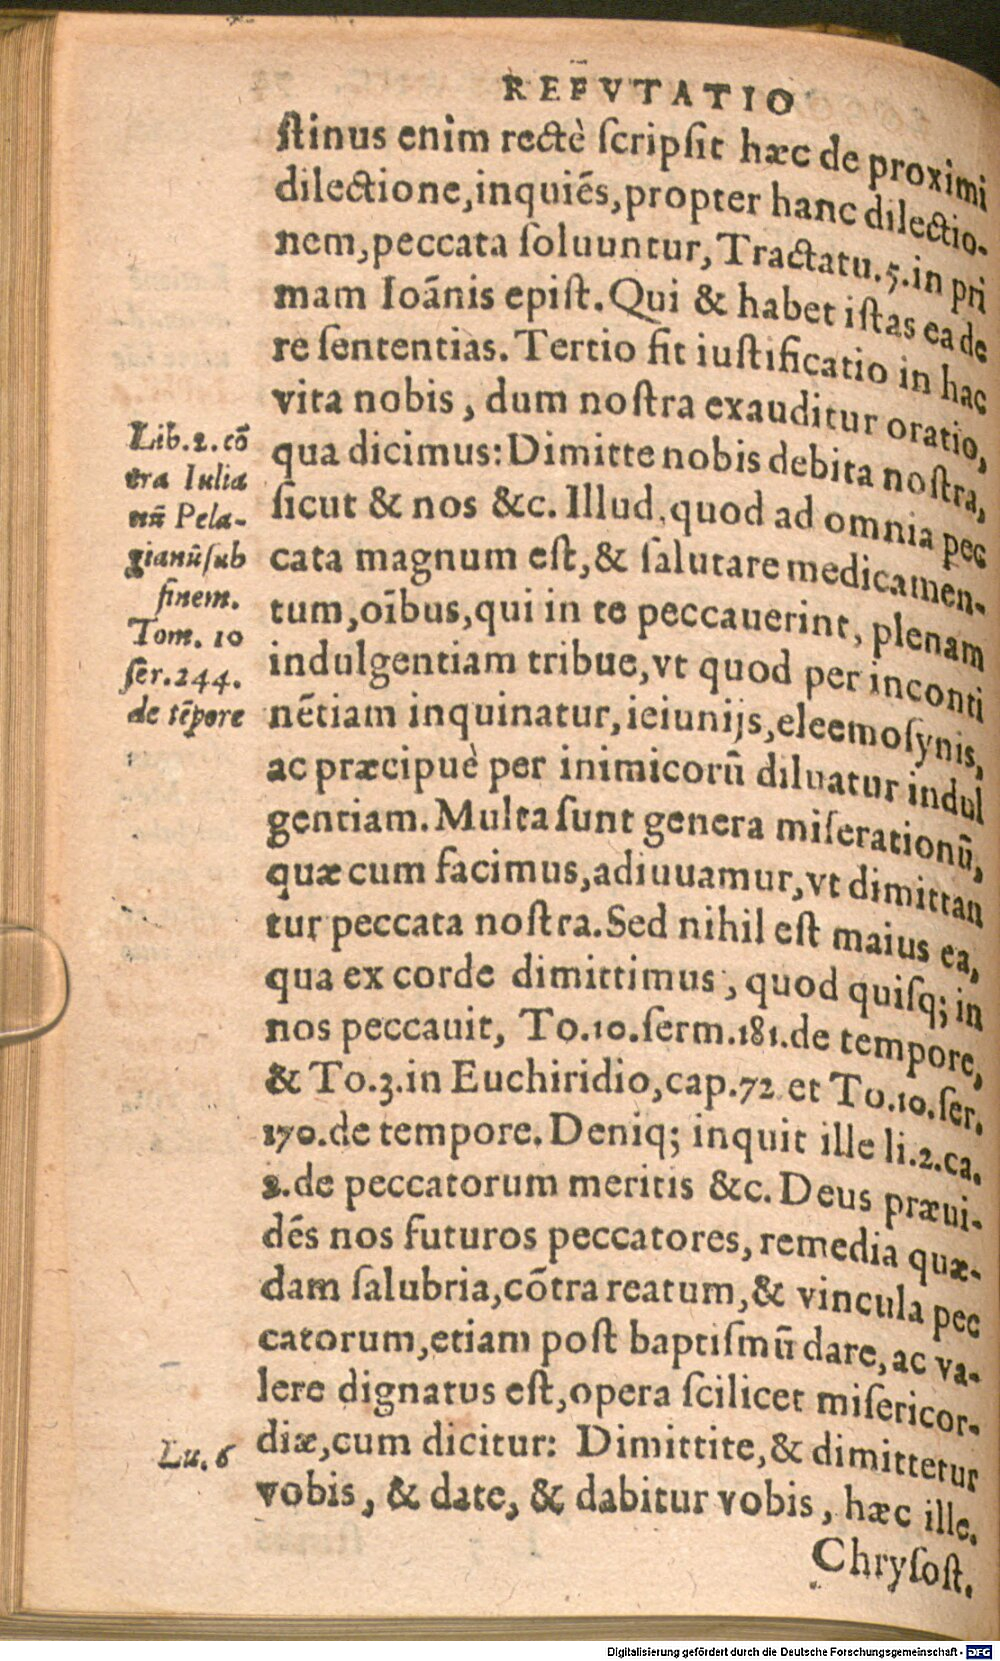 REFVTATIO
ſtinus enim rectè ſcripſit hæc de proximi
dilectione, inquiẽs, propter hanc dilectio-
nem, peccata ſoluuntur, Tractatu. 5. in pri
mam Ioãnis epiſt. Qui & habet iſtas ea de
re ſententias. Tertio fit iuſtificatio in hac
vita nobis, dum noſtra exauditur oratio,
qua dicimus: Dimitte nobis debita noſtra,
ſicut & nos &c. Illud, quod ad omnia pec
cata magnum eſt, & ſalutare medicamen-
tum, oĩbus, qui in te peccauerint, plenam
indulgentiam tribue, vt quod per inconti
nẽtiam inquinatur, ieiunijs, eleemoſynis,
ac præcipuè per inimicorũ diluatur indul
gentiam. Multa ſunt genera miſerationũ,
quæ cum facimus, adiuuamur, vt dimittan
tur peccata noſtra. Sed nihil eſt maius ea,
qua ex corde dimittimus, quod quiſq; in
nos peccauit, To. 10. ſerm. 181. de tempore,
& To. 3. in Euchiridio, cap. 72 et To. 10. ſer.
170. de tempore. Deniq; inquit ille li. 2. ca.
2. de peccatorum meritis &c. Deus præui-
dẽs nos futuros peccatores, remedia quæ-
dam ſalubria, cõtra reatum, & vincula pec
catorum, etiam poſt baptiſmũ dare, ac va-
lere dignatus eſt, opera ſcilicet miſericor-
diæ, cum dicitur: Dimittite, & dimittetur
vobis, & date, & dabitur vobis, hæc ille.
Chryſoſt.
Lib. 2. cõ
tra Iulia
nũ Pela-
gianũ ſub
finem.
Tom. 10
ſer. 244.
de tẽpore
Lu. 6
Digitalisierung gefördert durch die Deutsche Forschungsgemeinschaft - DFG